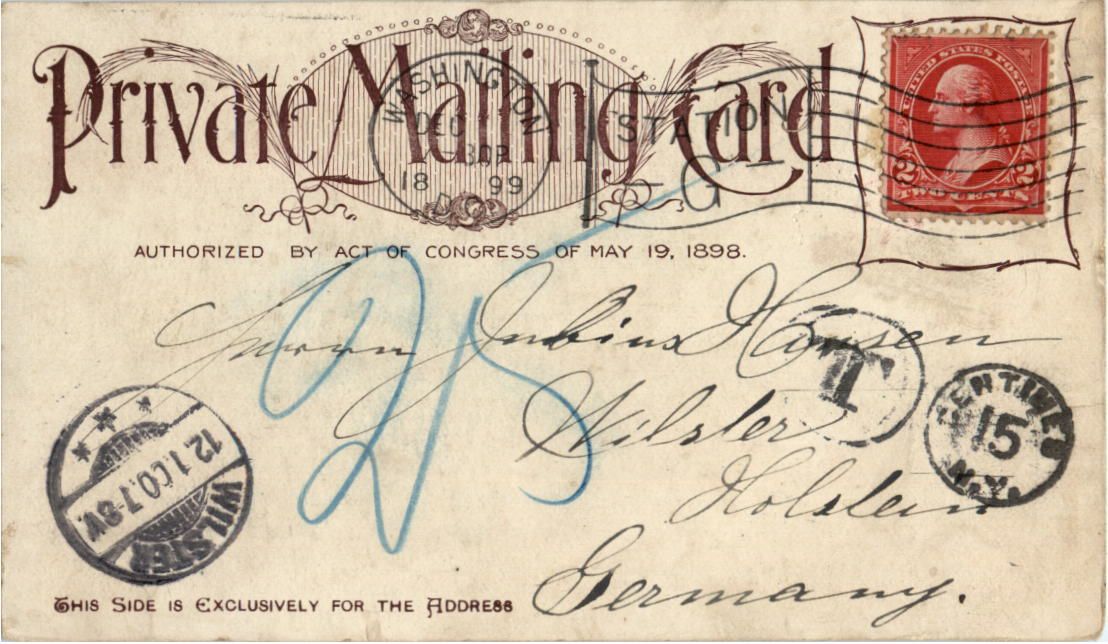 Private Mailing Card
WASHINGTON
DEC
30 P
18 99
D.C.
STATION
G
UNITED STATES POSTAGE
2 2
TWO CENTS
AUTHORIZED BY ACT OF CONGRESS OF MAY 19, 1898.
25
Herrn Julius Hansen
T
CENTIMES
15
N.Y.
Wilster
Holstein
Germany.
12 1 00. 7-8V.
WILSTER
THIS SIDE IS EXCLUSIVELY FOR THE ADDRESS